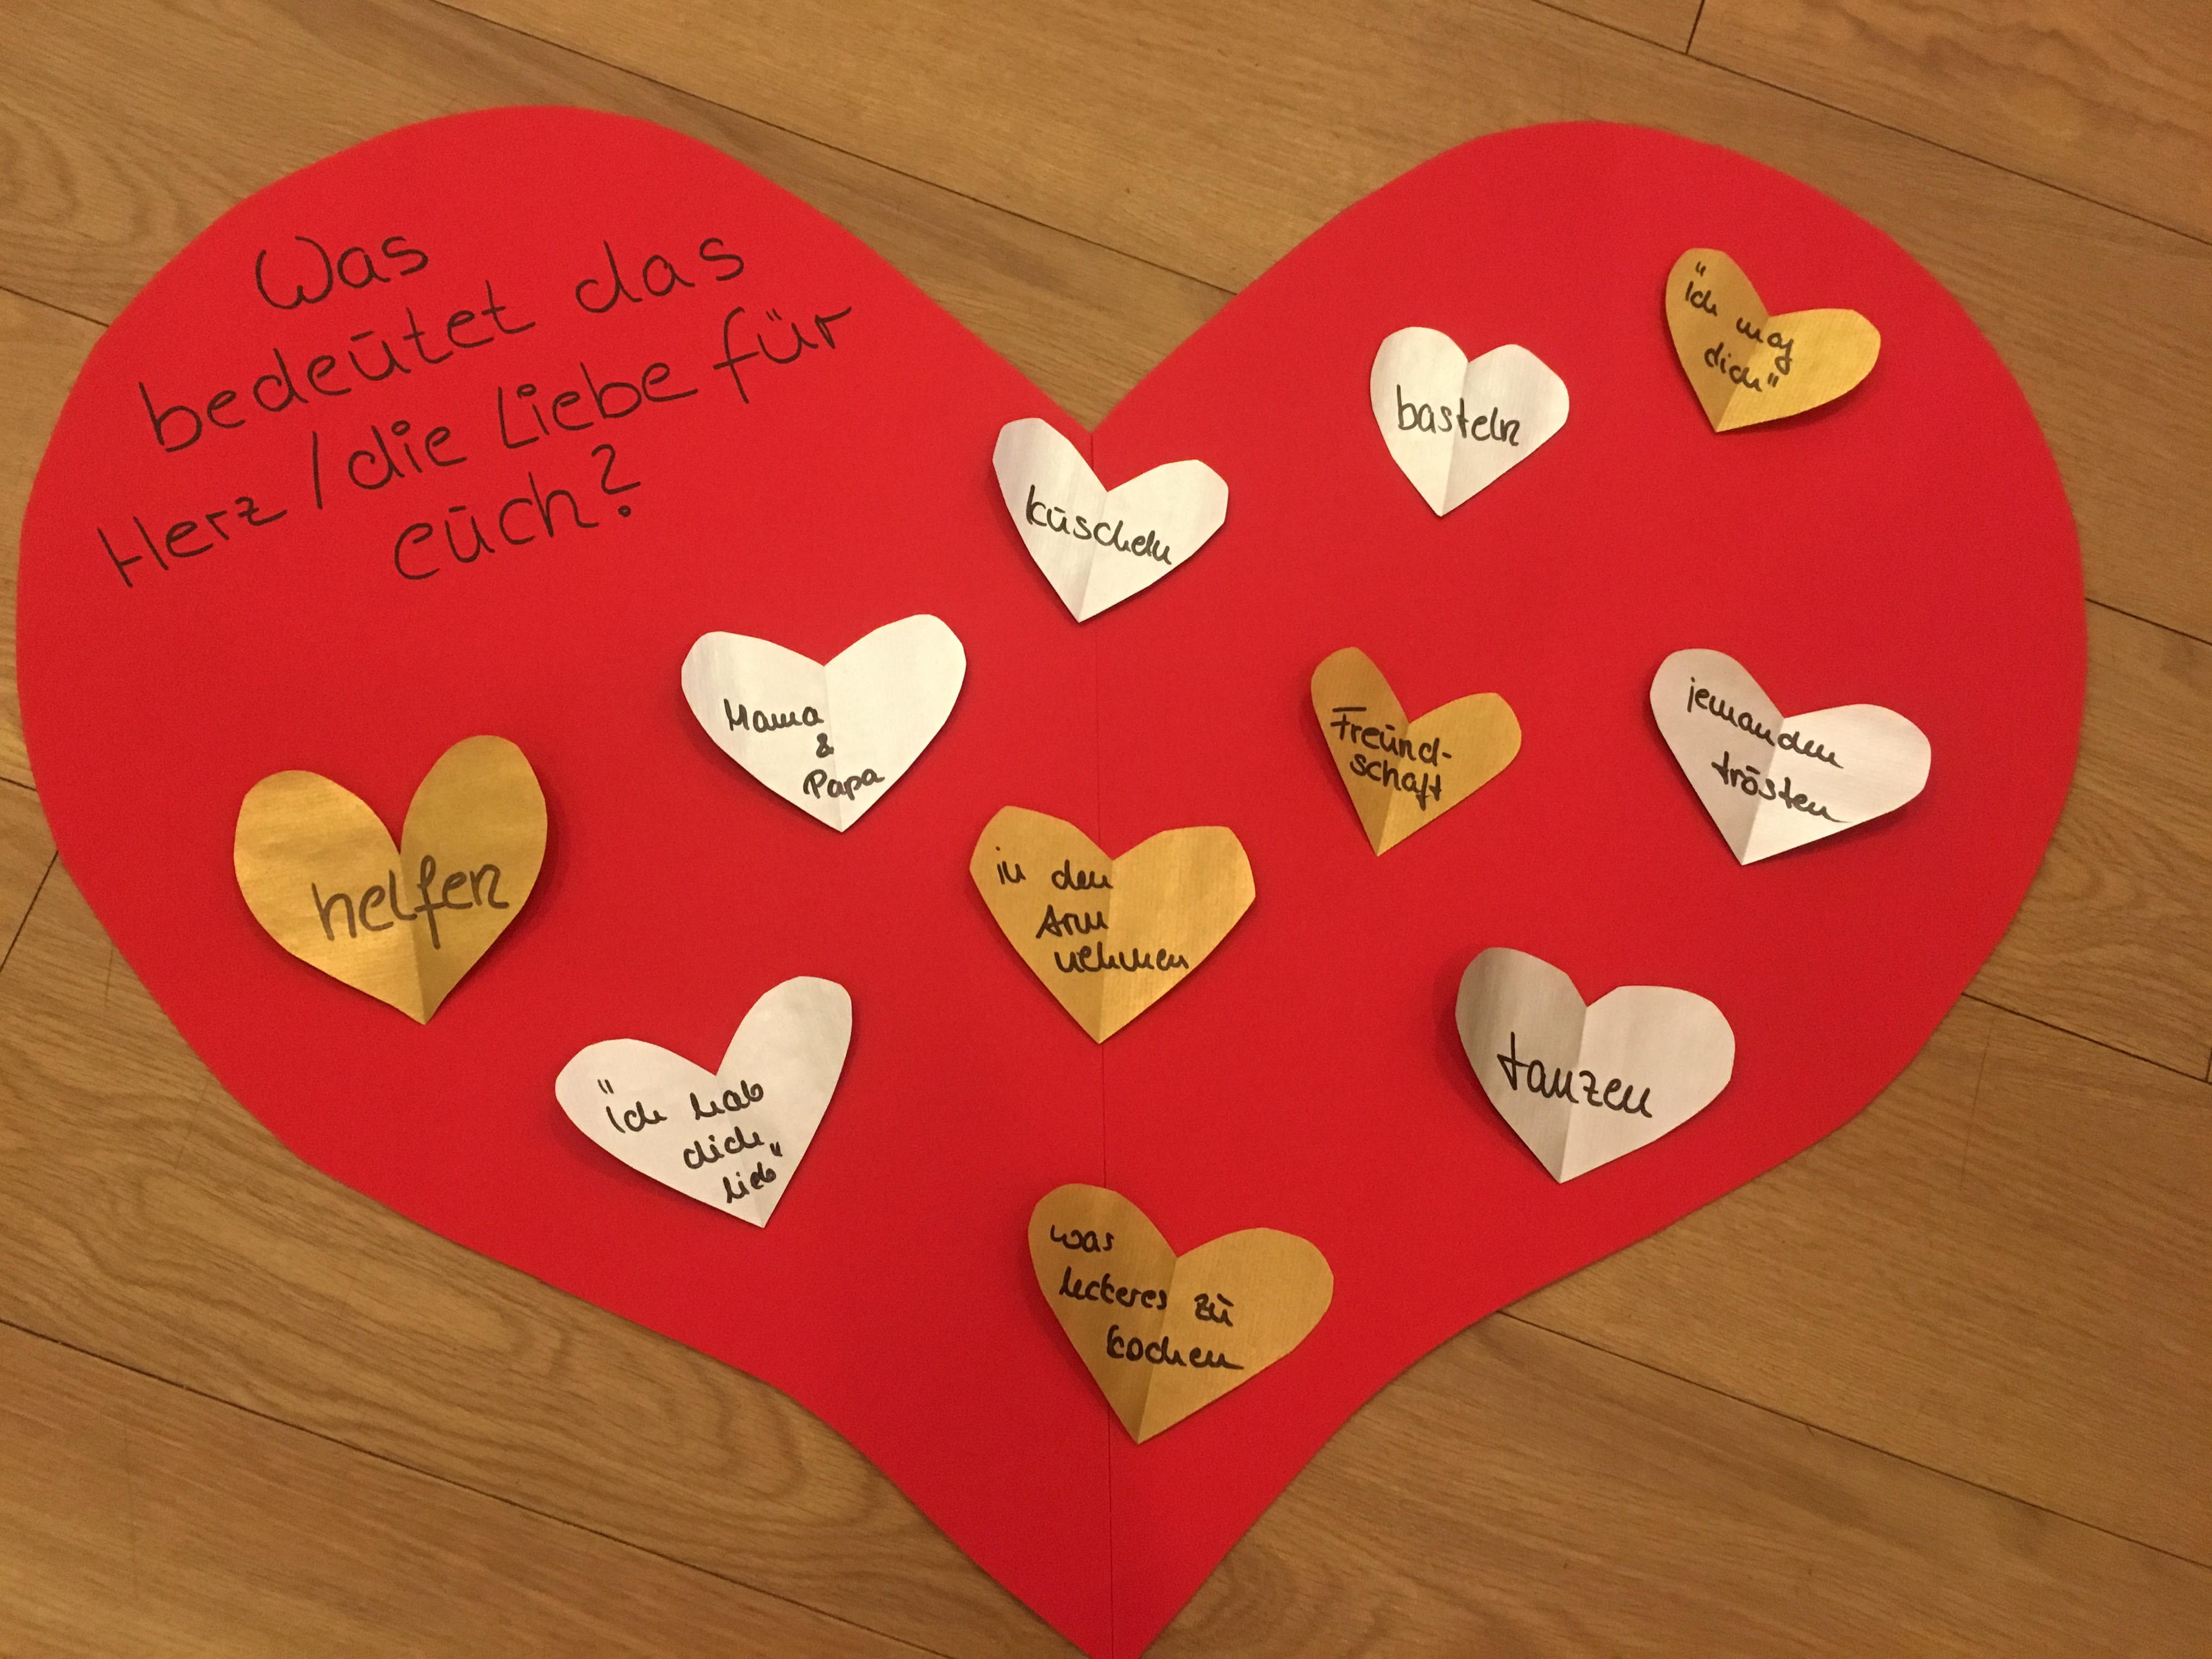 Was
bedeutet das
Herz / die Liebe für
euch?
"ich mag
dich"
basteln
kuscheln
Mama
&
Papa
Freund-
schaft
jemanden
trösten
helfen
in den
Arm
nehmen
"ich hab
dich
lieb"
tanzen
was
leckeres zu
kochen